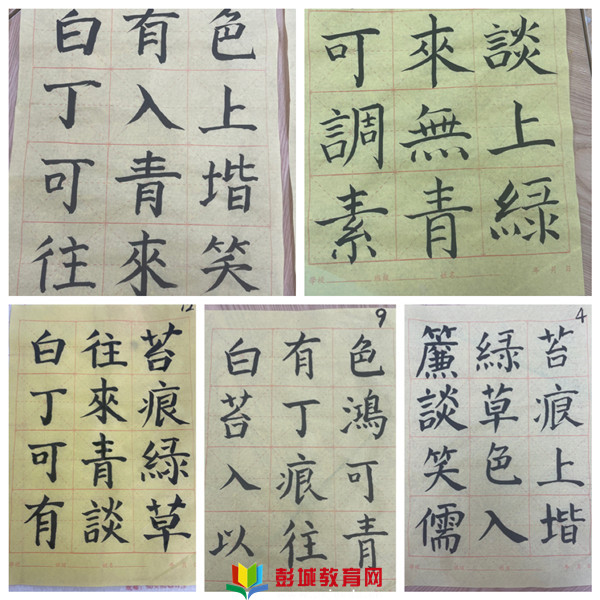 色上堦笑
有入青來
白丁可往
談上緑
來無青
可調素
12
苔痕緑草
往來青談
白丁可有
9
色鴻可青
有丁痕往
白苔入以
4
苔痕上堦
緑草色入
簾談笑儒
彭城教育网